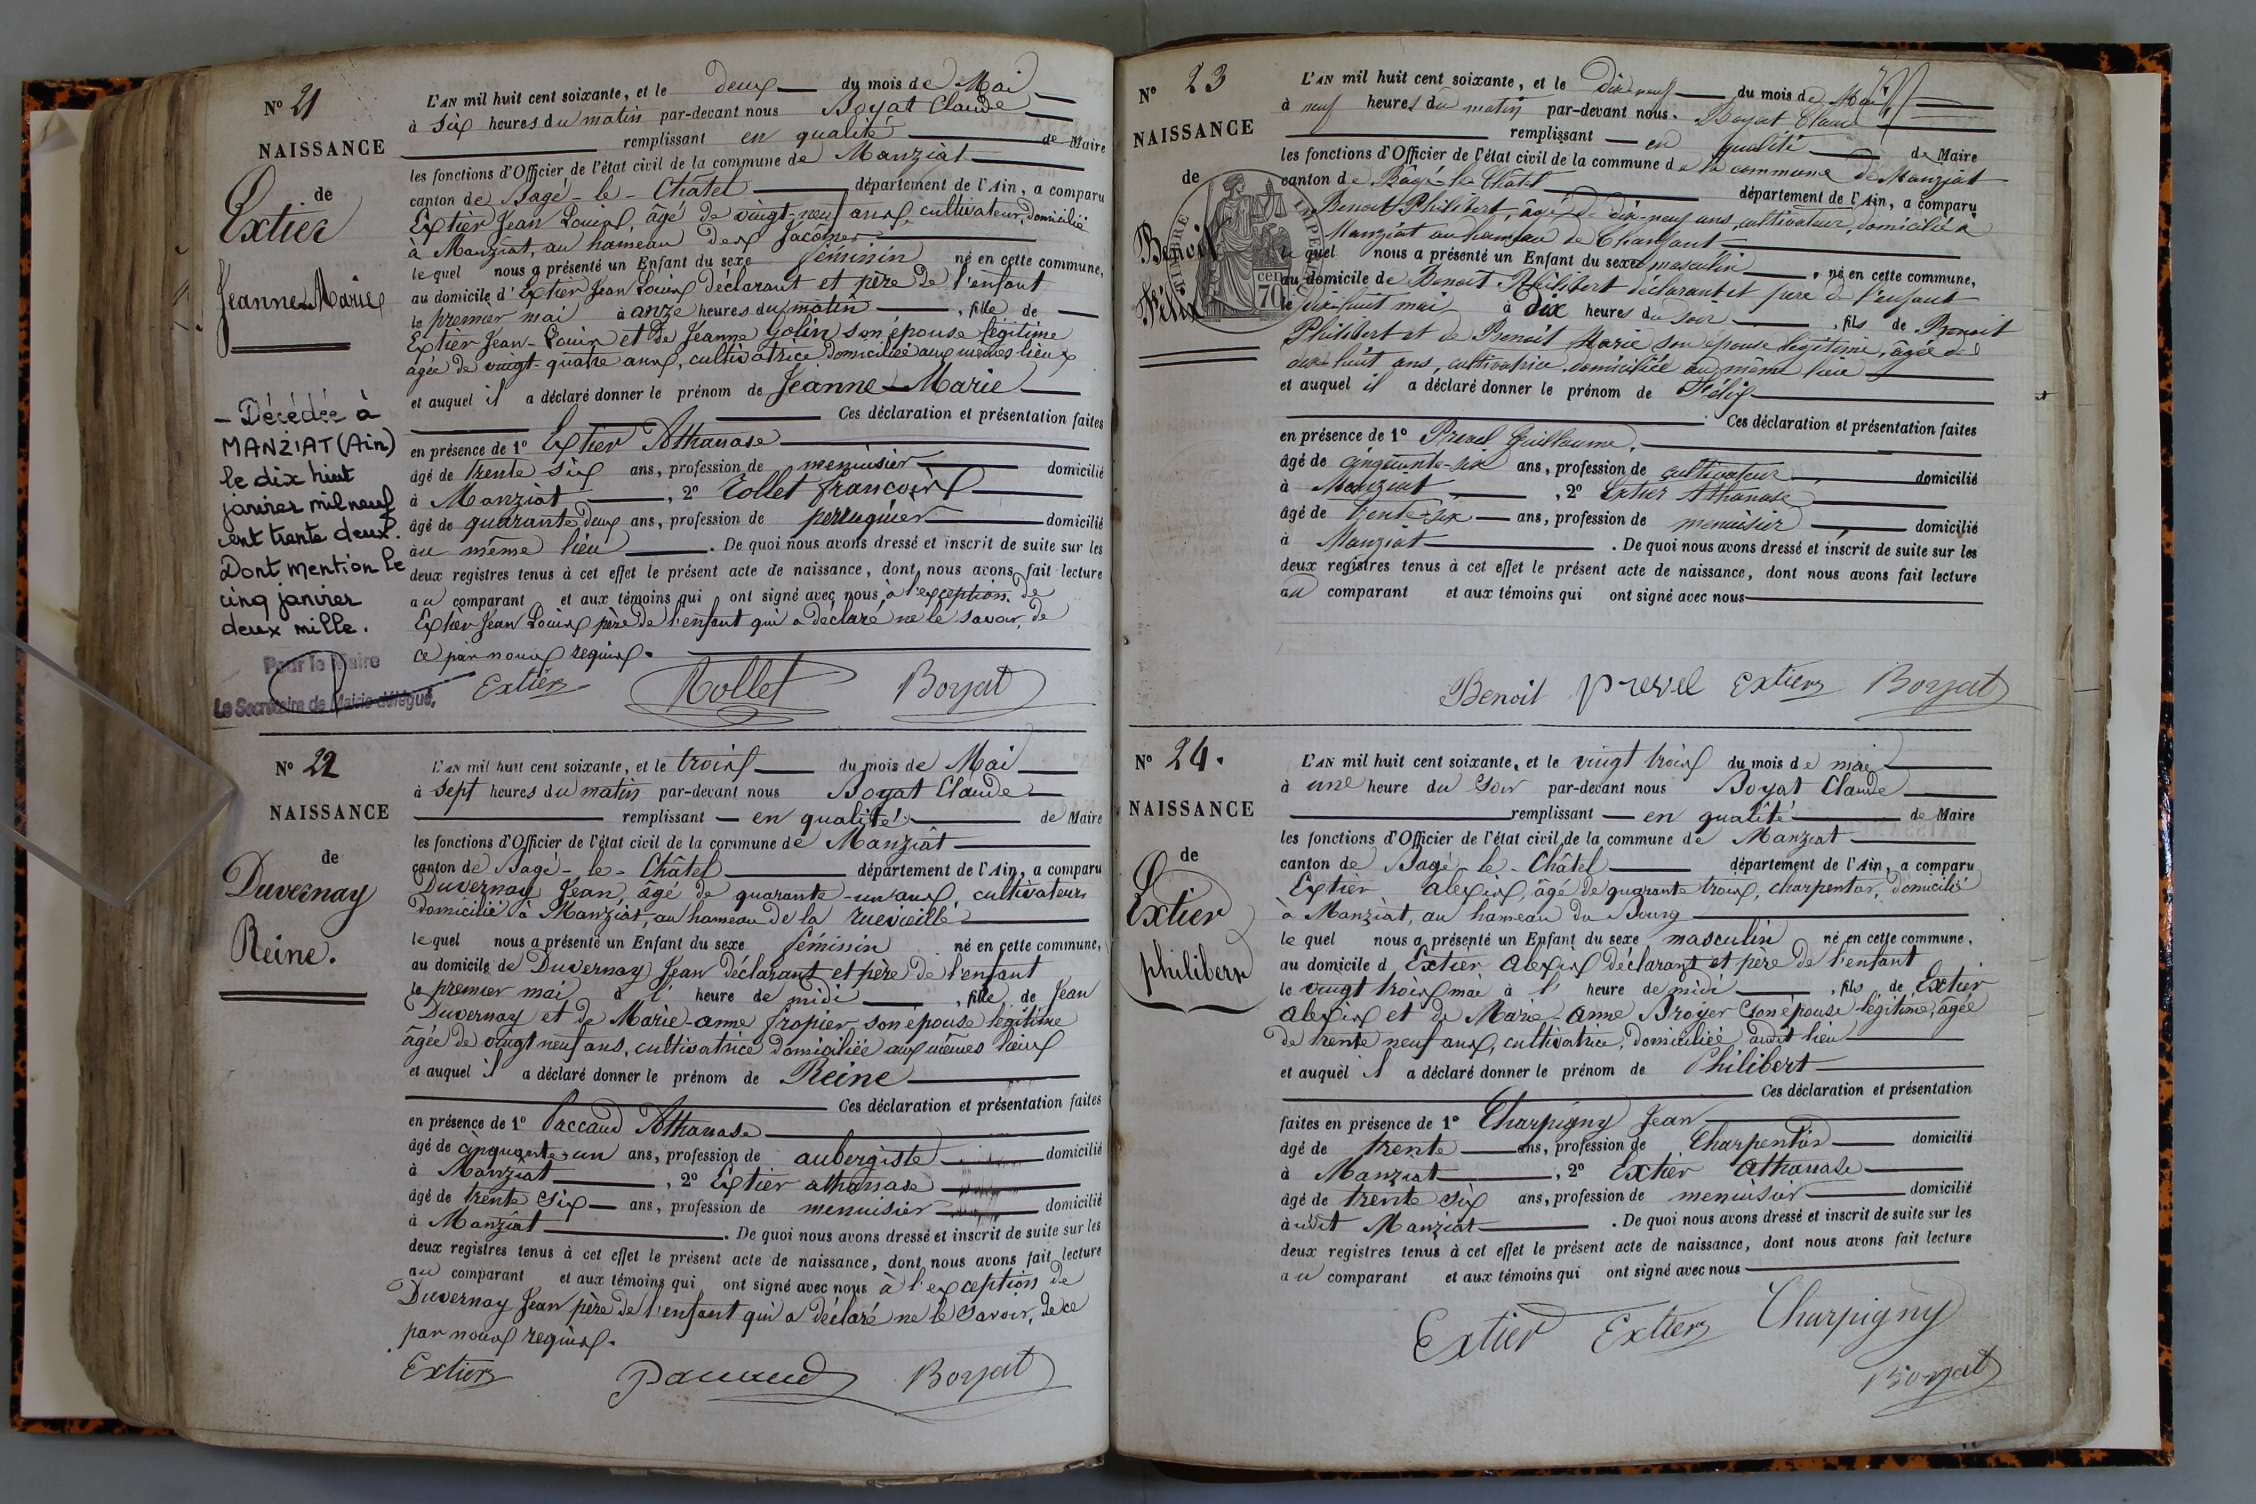 N° 21
NAISSANCE
de
Extier
Jeanne Marie
- Décédée à
MANZIAT (Ain)
le dix huit
janvier mil neuf
cent trente deux.
Dont mention le
cinq janvier
deux mille.
Pour le Maire
Le Secrétaire de Mairie délégué,
L'AN mil huit cent soixante, et le deux du mois de Mai
à six heures du matin par-devant nous Boyat Claude
remplissant en qualité de Maire
les fonctions d'Officier de l'état civil de la commune de Manziat
canton de Bagé-le-Châtel département de l'Ain, a comparu
Extier Jean Louis, âgé de vingt-neuf ans, cultivateur, domicilié
à Manziat, au hameau des Jacômes
le quel nous a présenté un Enfant du sexe féminin né en cette commune,
au domicile d'Extier Jean Louis déclarant et père de l'enfant
le premier mai à onze heures du matin, fille de
Extier Jean-Louis et de Jeanne Golin son épouse légitime
âgée de vingt-quatre ans, cultivatrice domiciliée aux mêmes lieux
et auquel il a déclaré donner le prénom de Jeanne-Marie
Ces déclaration et présentation faites
en présence de 1° Extier Athanase
âgé de trente six ans, profession de menuisier domicilié
à Manziat, 2° Tollet françois
âgé de quarante deux ans, profession de perruquier domicilié
au même lieu. De quoi nous avons dressé et inscrit de suite sur les
deux registres tenus à cet effet le présent acte de naissance, dont nous avons fait lecture
au comparant et aux témoins qui ont signé avec nous à l'exception de
Extier Jean Louis père de l'enfant qui a déclaré ne le savoir, de
ce par nous requis.
Extier Tollet Boyat
N° 22
NAISSANCE
de
Duvernay
Reine.
L'AN mil huit cent soixante, et le trois du mois de Mai
à sept heures du matin par-devant nous Boyat Claude
remplissant en qualité de Maire
les fonctions d'Officier de l'état civil de la commune de Manziat
canton de Bagé-le-Châtel département de l'Ain, a comparu
Duvernay Jean, âgé de quarante-un ans, cultivateur
domicilié à Manziat, au hameau de la ruevieille
le quel nous a présenté un Enfant du sexe féminin né en cette commune,
au domicile de Duvernay Jean déclarant et père de l'enfant
le premier mai à l' heure de midi, fille de Jean
Duvernay et de Marie-anne fropier son épouse légitime
âgée de vingt neuf ans, cultivatrice domiciliée aux mêmes lieux
et auquel il a déclaré donner le prénom de Reine
Ces déclaration et présentation faites
en présence de 1° Paccaud Athanase
âgé de cinquante-un ans, profession de aubergiste domicilié
à Manziat, 2° Extier athanase
âgé de trente six ans, profession de menuisier domicilié
à Manziat. De quoi nous avons dressé et inscrit de suite sur les
deux registres tenus à cet effet le présent acte de naissance, dont nous avons fait lecture
au comparant et aux témoins qui ont signé avec nous à l'exception de
Duvernay Jean père de l'enfant qui a déclaré ne le savoir, de ce
par nous requis.
Extier Paccaud Boyat
N° 23
NAISSANCE
de
Benoit
Félix
TIMBRE IMPERIAL
cen
70
L'AN mil huit cent soixante, et le dix-neuf du mois de Mai
à neuf heures du matin par-devant nous. Boyat Claude
remplissant en qualité de Maire
les fonctions d'Officier de l'état civil de la commune de la commune de Manziat
canton de Bâgé-le-Châtel département de l'Ain, a comparu
Benoit Philibert, âgé de dix-neuf ans, cultivateur, domicilié à
Manziat au hameau de Chanfant
le quel nous a présenté un Enfant du sexe masculin, né en cette commune,
au domicile de Benoit Philibert déclarant et père de l'enfant
le dix-huit mai à Dix heures du soir, fils de Benoit
Philibert et de Benoit Marie son épouse légitime, âgée de
dix-huit ans, cultivatrice domiciliée au même lieu
et auquel il a déclaré donner le prénom de Félix
Ces déclaration et présentation faites
en présence de 1° Prevel Guillaume,
âgé de cinquante-six ans, profession de cultivateur, domicilié
à Manziat, 2° Extier Athanase
âgé de trente-six ans, profession de menuisier, domicilié
à Manziat. De quoi nous avons dressé et inscrit de suite sur les
deux registres tenus à cet effet le présent acte de naissance, dont nous avons fait lecture
au comparant et aux témoins qui ont signé avec nous
Benoit Prevel Extier Boyat
N° 24.
NAISSANCE
de
Extier
philibert
L'AN mil huit cent soixante, et le vingt trois du mois de mai
à une heure du soir par-devant nous Boyat Claude
remplissant en qualité de Maire
les fonctions d'Officier de l'état civil de la commune de Manziat
canton de Bagé-le-Châtel département de l'Ain, a comparu
Extier alexis, âgé de quarante trois, charpentier, domicilié
à Manziat, au hameau du Bourg
le quel nous a présenté un Enfant du sexe masculin né en cette commune,
au domicile d Extier alexis déclarant et père de l'enfant
le vingt trois mai à l' heure de midi, fils de Extier
alexis et de Marie-anne Broyer son épouse légitime, âgée
de trente neuf ans, cultivatrice, domiciliée audit lieu
et auquel il a déclaré donner le prénom de Philibert
Ces déclaration et présentation
faites en présence de 1° Charpigny Jean
âgé de trente ans, profession de Charpentier domicilié
à Manziat, 2° Extier athanase
âgé de trente six ans, profession de menuisier domicilié
audit Manziat. De quoi nous avons dressé et inscrit de suite sur les
deux registres tenus à cet effet le présent acte de naissance, dont nous avons fait lecture
au comparant et aux témoins qui ont signé avec nous
Extier Extier Charpigny
Boyat